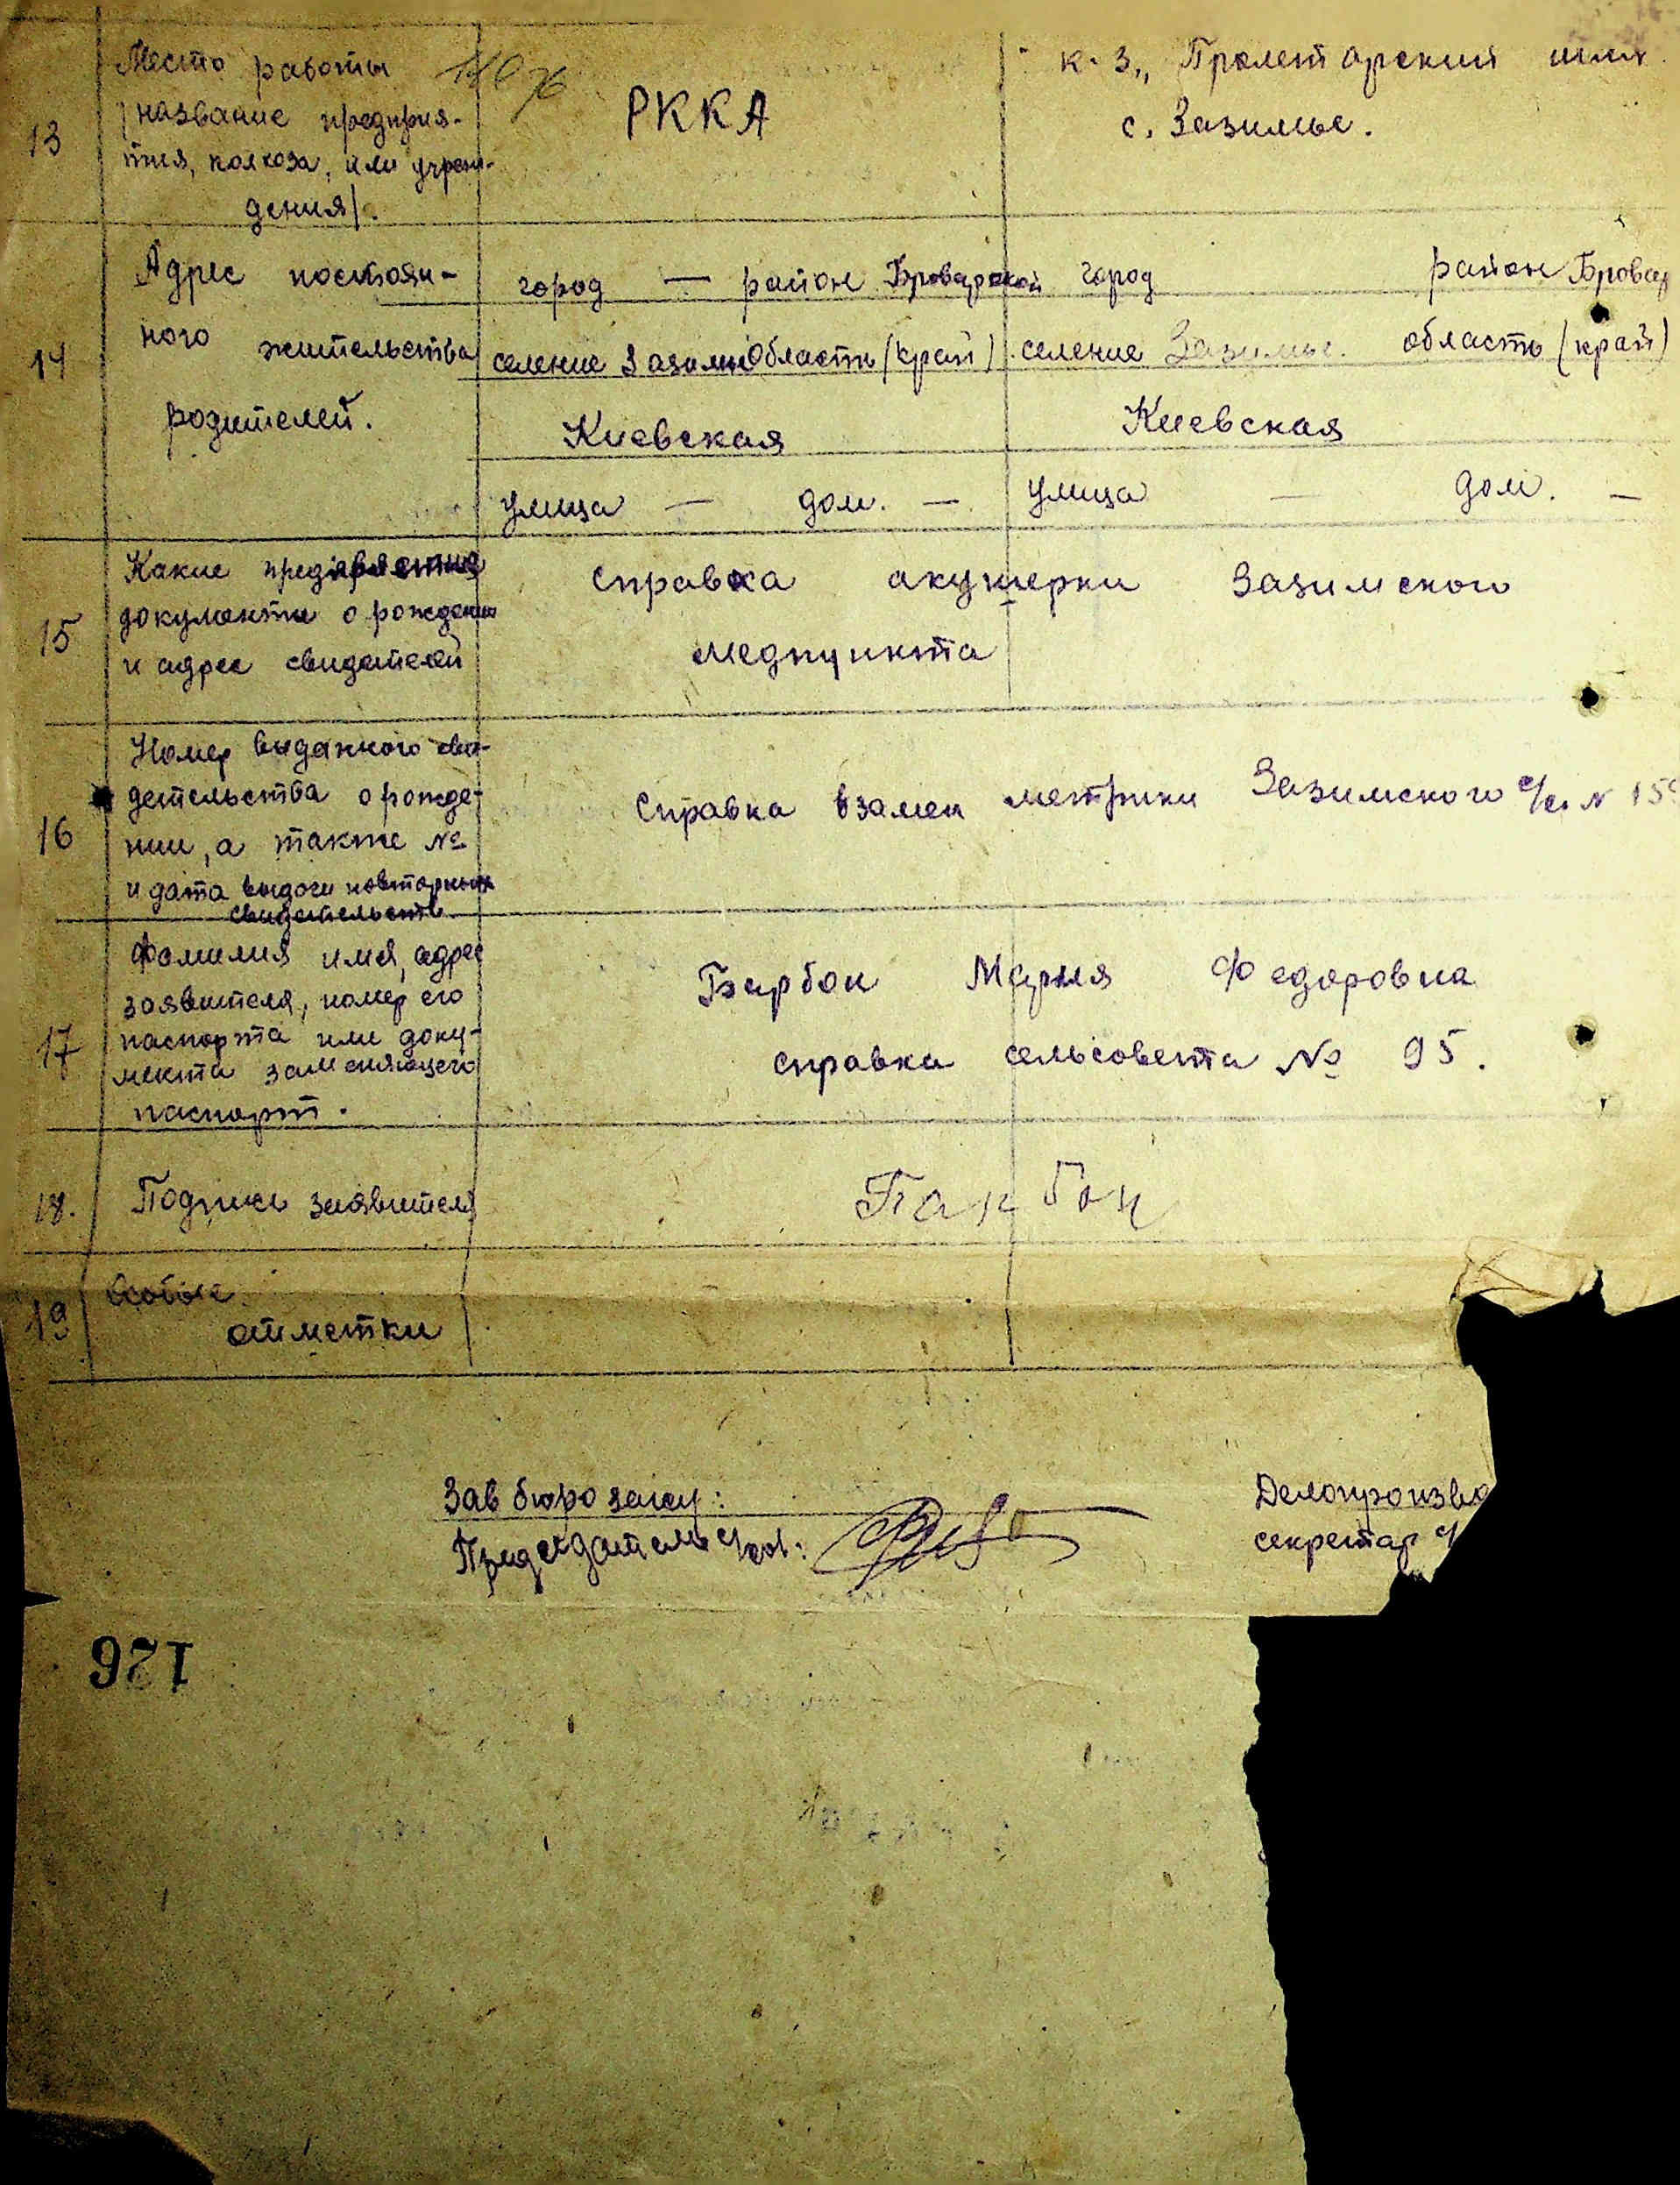 13
Место работы
/название предприя-
тия, колхоза, или учреж-
дения/.
РККА
к-з „Пролетарский шлях
с. Зазимье.
14
Адрес постоян-
ного жительства
родителей.
город — район Броварской
селение Зазимье область (край)
Киевская
улица — дом. —
город район Бровар
селение Зазимье. область (край)
Киевская
улица — дом. —
15
Какие предявлены
документы о рождении
и адрес свидетелей
Справка акушерки Зазимского
медпункта
16
Номер выданного сви-
детельства о рожде-
нии, а также №
и дата выдачи повторных
свидетельств
Справка взамен метрики Зазимского с/с. N 15
17
Фамилия имя, адрес
заявителя, номер его
паспорта или доку-
мента заменяющего
паспорт.
Барбон Мария Федоровна
справка сельсовета № 95.
18.
Подпись заявителя
Барбон
19
Особые
отметки
Зав бюро загса:
Председатель с/сов.:
Делопроизво
секретар с/
126